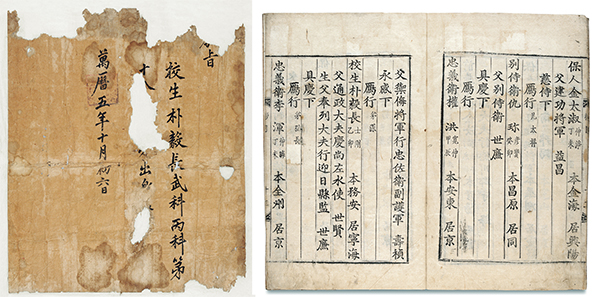 旨
校生朴毅長武科丙科第
十八
出
萬曆五年十月初六日
保人金大淑 本金海 居興陽
父建功將軍 益昌
慈侍下
鴈行
別侍衛仇 珎 癸卯 本昌原 居同
父別侍衛 世
具慶下
鴈行
忠義衛權 洪 甲辰 本安東 居京
父禦侮將軍行忠佐衛副護軍 壽楨
永感下
鴈行
校生朴毅長 士剛 乙卯 本務安 居寧海
父通政大夫慶尙左水使 世賢
生父奉列大夫行迎日縣監 世廉
具慶下
鴈行
忠義衛李 渾 丁未 本全州 居京